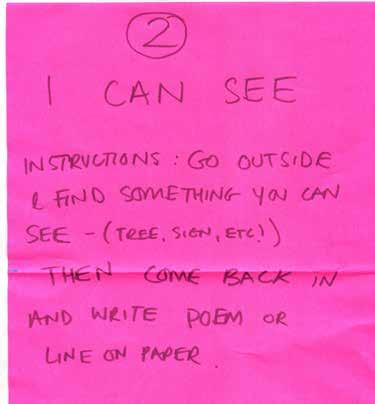 2
I CAN SEE
INSTRUCTIONS: GO OUTSIDE
& FIND SOMETHING YOU CAN
SEE - (TREE, SIGN, ETC!)
THEN COME BACK IN
AND WRITE POEM OR
LINE ON PAPER.